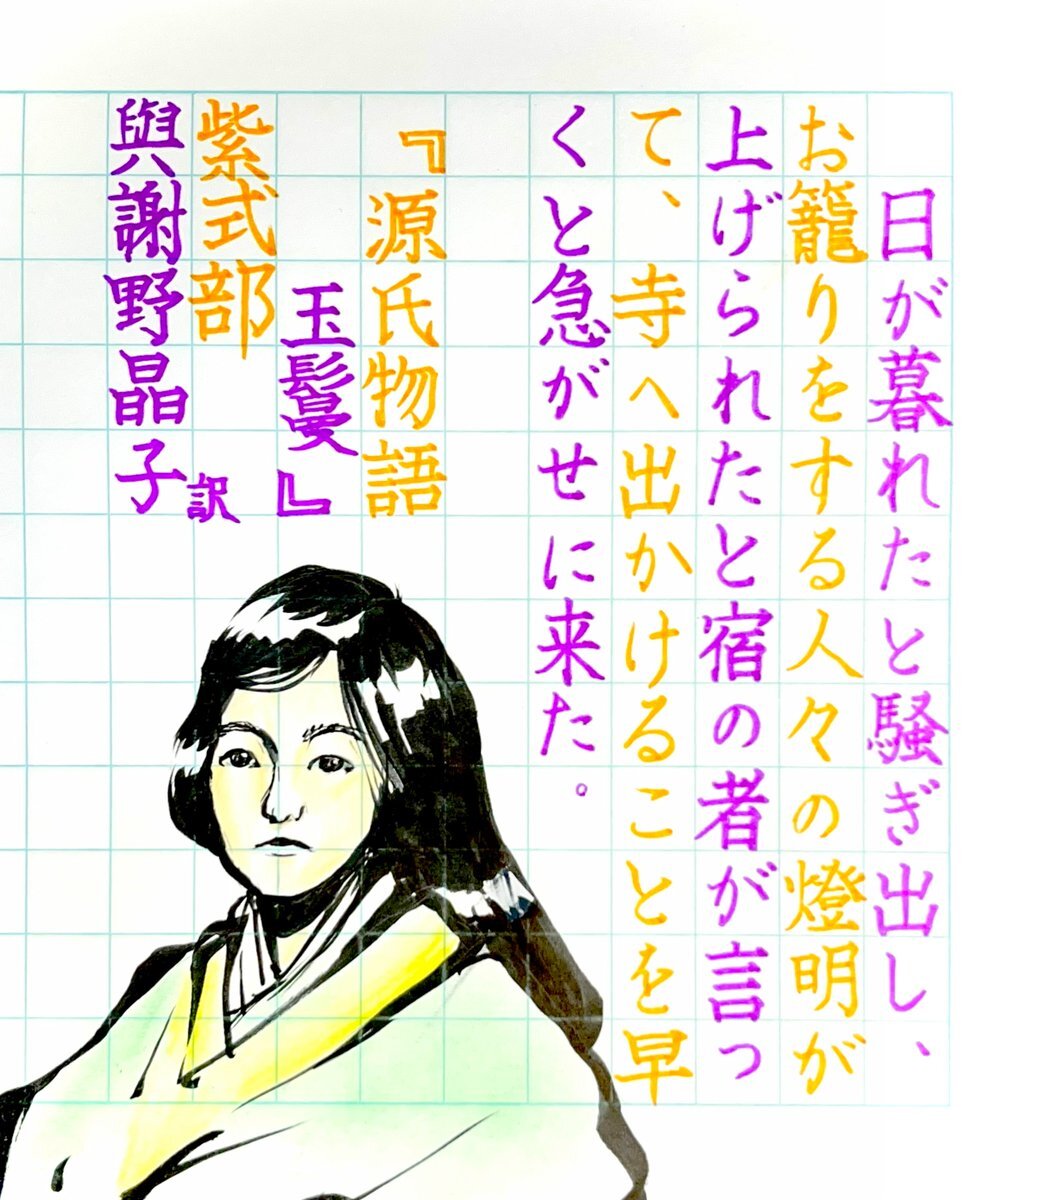 日が暮れたと騒ぎ出し、
お籠りをする人々の燈明が
上げられたと宿の者が言っ
て、寺へ出かけることを早
くと急がせに来た。
『源氏物語
玉鬘』
紫式部
與謝野晶子訳